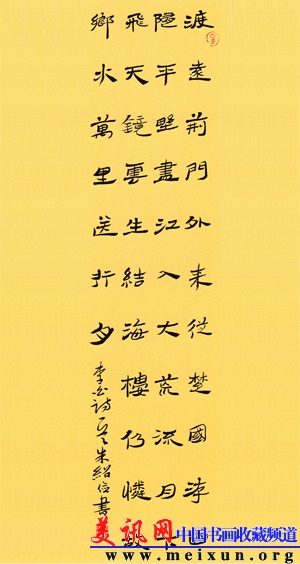 渡遠荊門外来從楚國游山
隨平野盡江入大荒流月下
飛天鏡雲生結海樓仍憐故
鄉水萬里送行舟
李白詩一首 朱紹信書
美讯网 中国书画收藏频道
www.meixun.org